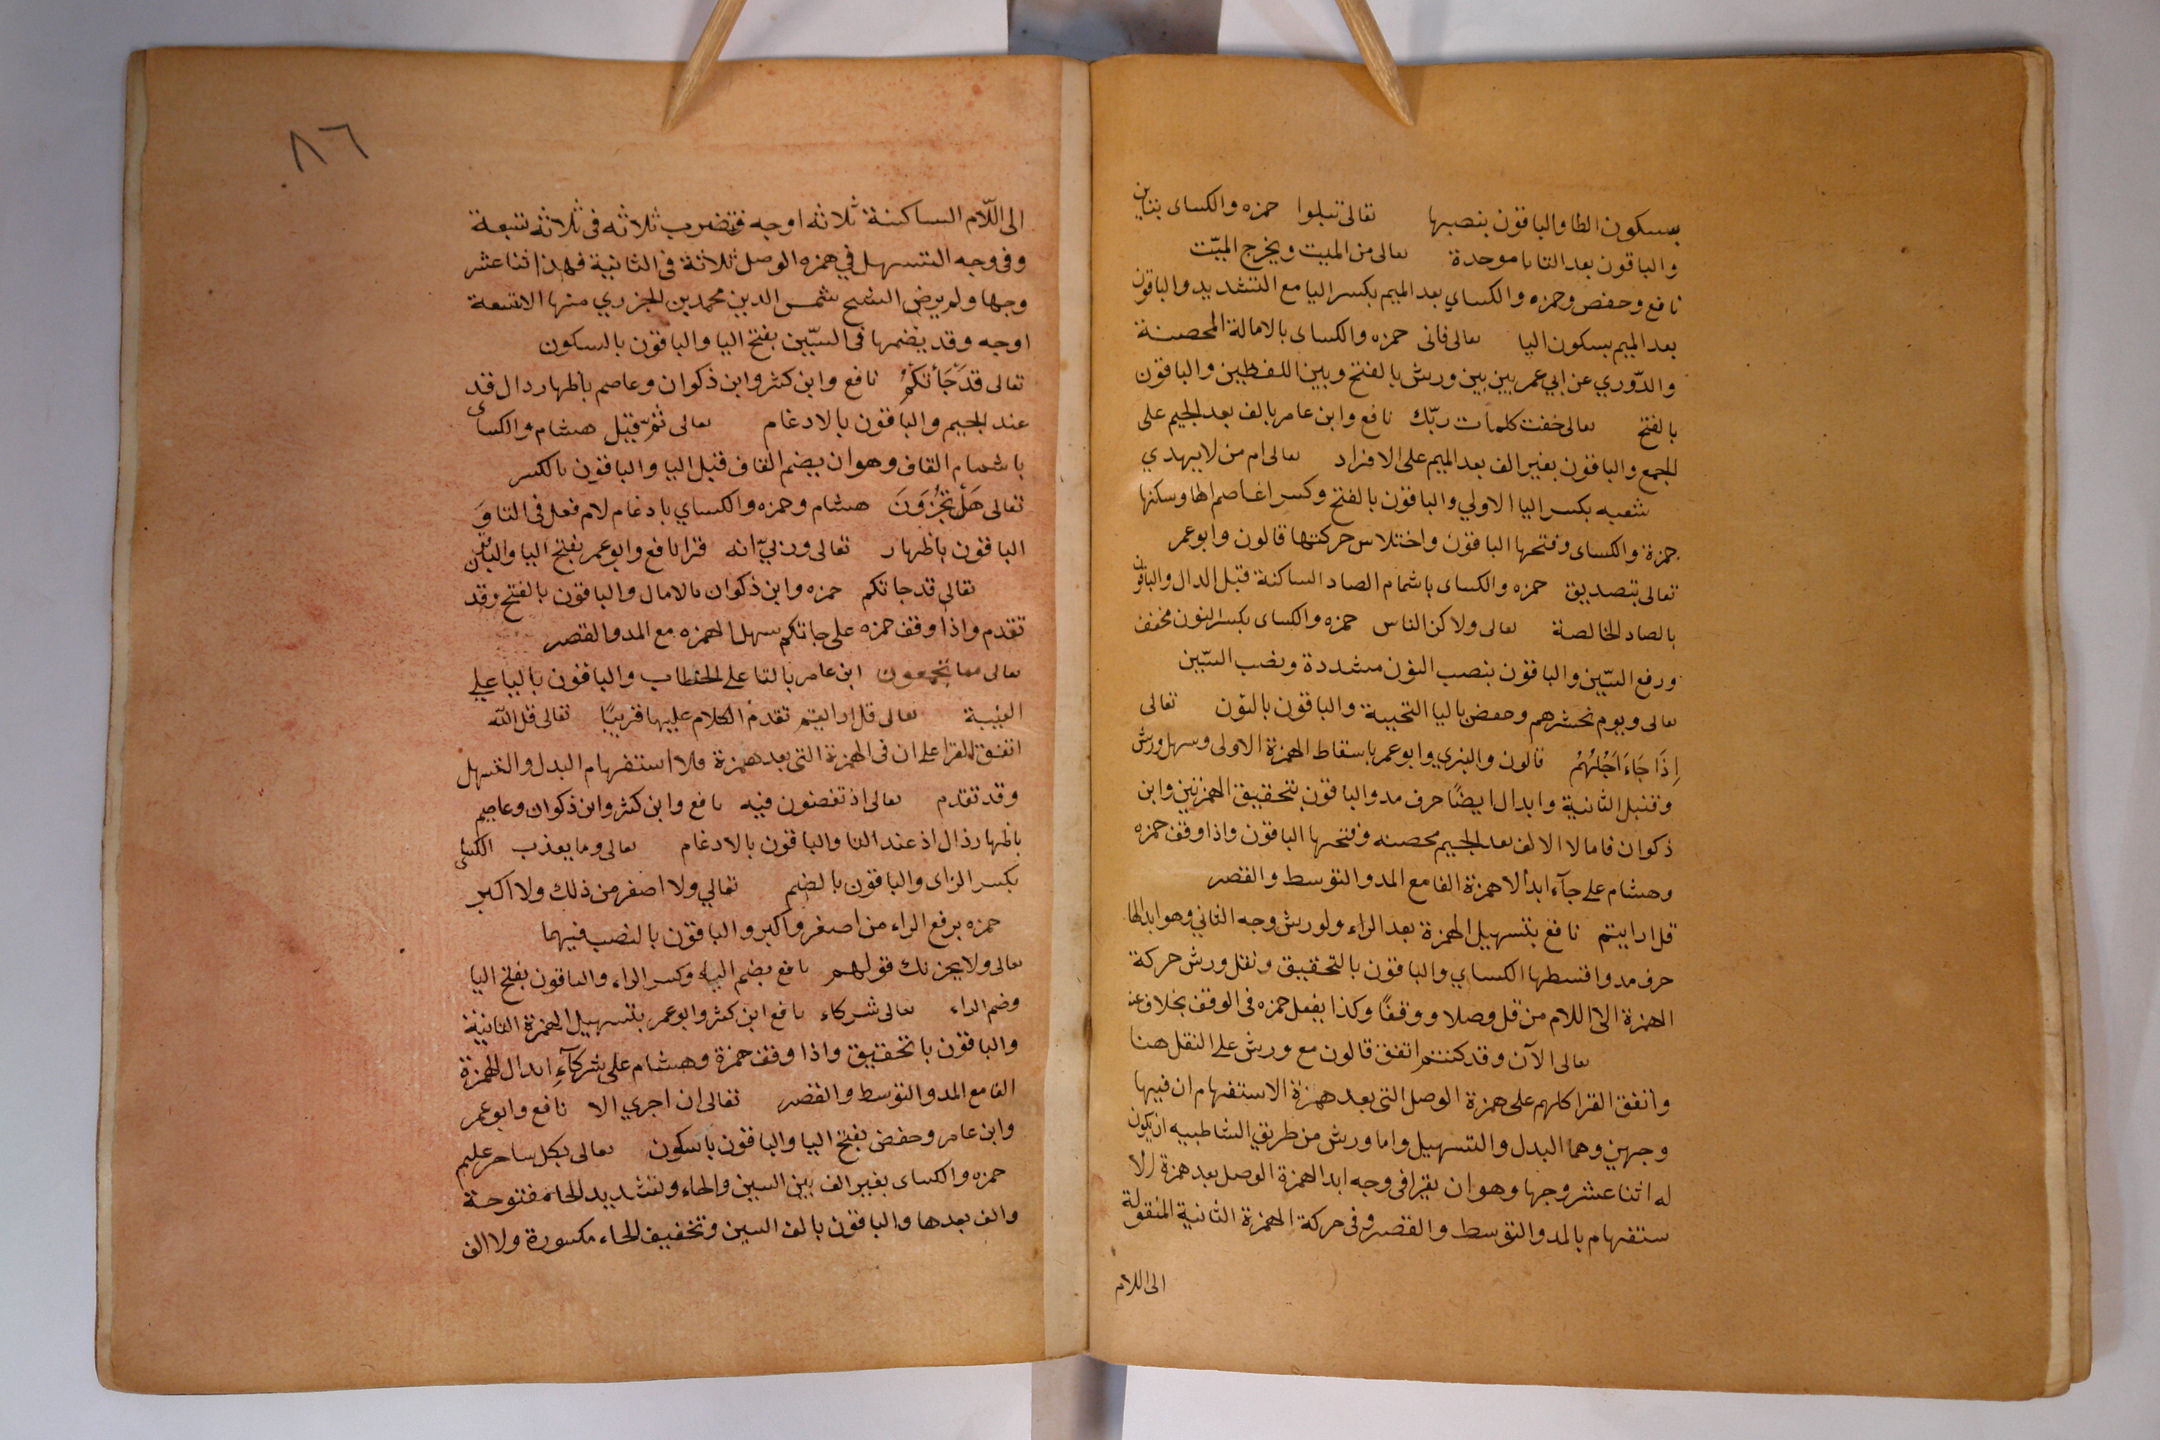 بسكون الطا والباقون بنصبها تعالى تبلوا حمزه والكساى بتاين
والباقون بعد التا با موحدة تعالى من الميت ويخرج الميّت
نافع وحفص وحمزه والكساي بعد الميم بكسر اليا مع التشديد والباقون
بعد الميم بسكون اليا تعالى فانى حمزه والكساى بالامالة المحصنة
والدّوري عن ابي عمر بين بين وورش بالفتح وبين اللفظين والباقون
بالفتح تعالى حقت كلمات ربّك نافع وابن عامر بالف بعد الجيم على
الجمع والباقون بغير الف بعد الميم على الافراد تعالى ام من لا يهدي
شعبه بكسر اليا الاولي والباقون بالفتح وكسر الها عاصم وسكنها
حمزة والكساى وفتحها الباقون واختلاس حركتها قالون وابو عمر
تعالى بتصديق حمزه والكساى باشمام الصاد الساكنة قبل الدال والباقون
بالصاد الخالصة تعالى ولاكن الناس حمزه والكساى بكسر النون مخفف
ورفع السّين والباقون بنصب النون مشددة ونصب السّين
تعالى ويوم نحشرهم وحفص باليا التحيية والباقون بالنون تعالى
اِذَا جَاءَ اَجْلُهُمْ قالون والبزي وابو عمر باسقاط الهمزة الاولى وسهل ورش
وقنبل الثانية وابدال ايضًا حرف مد والباقون بتحقيق الهمزتين وابن
ذكوان فامالا الالف بعد الجيم محصنه وفتحها الباقون واذا وقف حمزه
وهشام على جآء ابدالا همزة الفا مع المد والتوسط والقصر
قل ارايتم نافع بتسهيل الهمزة بعد الراء ولورش وجه الثاني وهو ابدالها
حرف مد واقسطها الكساي والباقون بالتحقيق ونقل ورش حركة
الهمزة الى اللام من قل وصلا ووقفًا وكذا يفعل حمزه فى الوقف بخلاف عنه
تعالى الآن وقد كنتم اتفق قالون مع ورش على النقل هنا
واتفق القرا كلهم على همزة الوصل التى بعد همزة الاستفهام ان فيها
وجهين وهما البدل والتسهيل واما ورش من طريق الشاطبيه ان يكون
له اثنا عشر وجها وهو ان يقرا فى وجه ابدال همزة الوصل بعد همزة الا
ستفهام بالمد والتوسط والقصر وفى حركة الهمزة الثانية المنقولة
الى اللام
٨٦
الى اللّام الساكنة ثلاثه اوجه فتضرب ثلاثه فى ثلاثه تسعة
وفى وجه التسهيل في همزه الوصل ثلاثة فى الثانية فهذا اثنا عشر
وجها ولم يرض الشيخ شمس الدين محمد بن الجزري منها الا تسعة
اوجه وقد يضمها فى السّين بفتح اليا والباقون بالسكون
تعالى قَدْجَأتكُمْ نافع وابن كثر وابن ذكوان وعاصم باظهار دال قد
عند الجيم والباقون بالادغام تعالى ثم قيل هشام والكساى
باشمام القاف وهو ان يضم القاف قبل اليا والباقون بالكسر
تعالى هَلْ تُجْزَوَنَ هشام وحمزه والكساي بادغام لام فعل فى التا وَ
الباقون باظهار تعالى وربيّ انه قرا نافع وابو عمر بفتح اليا والباقون
تعالى قد جاتكم حمزه وابن ذكوان بالامال والباقون بالفتح وقد
تقدم واذا وقف حمزه على جاتكم سهل الهمزه مع المد والقصر
تعالى مما تجمعون ابن عامر بالتا على الخطاب والباقون باليا على
الغيبة تعالى قل ارايتم تقدم الكلام عليها قريبًا تعالى قل الله
اتفق القرا على ان فى الهمزة التى بعد همزة ملا استفهام البدل والتسهيل
وقد تقدم تعالى اذ تفصنون فيه نافع وابن كثر وابن ذكوان وعاصم
باظهار ذال اذ عند التا والباقون بالادغام تعالى وما يعذب الكسى
بكسر الزاى والباقون بالضم تعالي ولا اصغر من ذلك ولا اكبر
حمزه برفع الراء من اصغر واكبر والباقون بالنصب فيهما
تعالى ولا يحزنك قولهم نافع بضم الياء وكسر الزاء والباقون بفتح اليا
وضم الراء تعالى شركاء نافع ابن كثر وابو عمر بتسهيل الهمزة الثانية
والباقون باتحقيق واذا وقف حمزة وهشام على شركآءِ ابدال الهمزة
الفا مع المد والتوسط والقصر تعالى ان اجري الا نافع وابو عمر
وابن عامر وحفص بفتح اليا والباقون باسكون تعالى بكل ساحر عليم
حمزه والكساى بغير الف بين السين والحاء وتشديد الحا مفتوحة
والف بعدها والباقون بالف السين وتخفيف الحاء مكسورة ولا الف